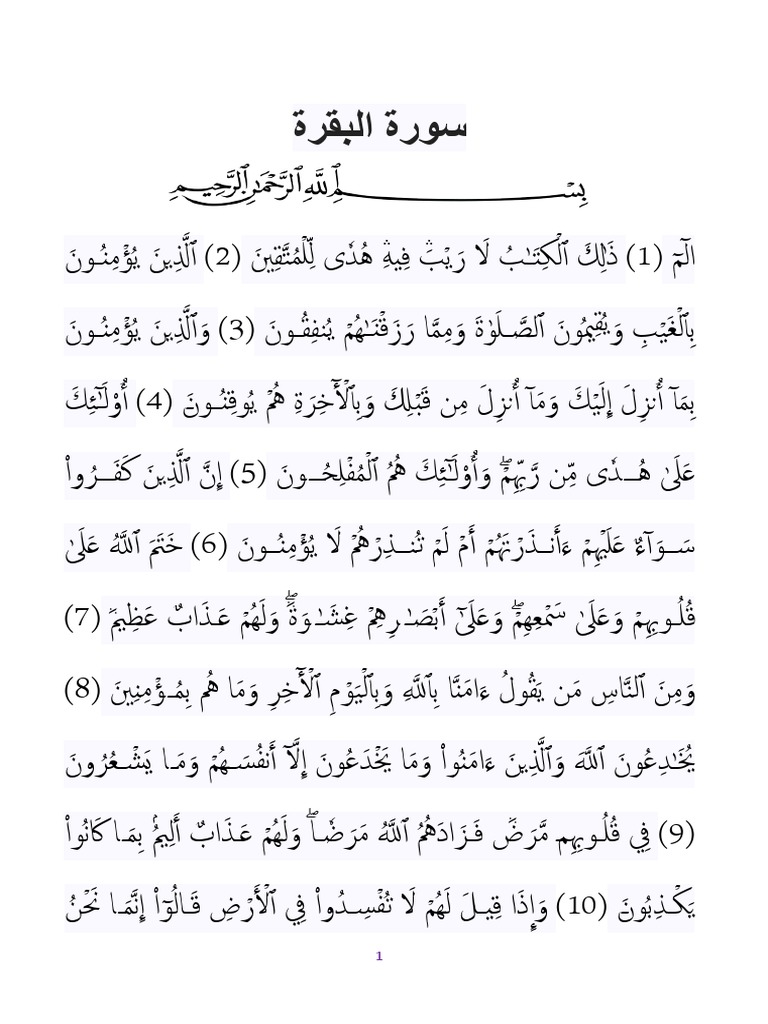 سورة البقرة
بِسْمِ ٱللَّهِ ٱلرَّحْمَٰنِ ٱلرَّحِيمِ
الٓمٓ (1) ذَٰلِكَ ٱلْكِتَٰبُ لَا رَيْبَۛ فِيهِۛ هُدًى لِّلْمُتَّقِينَ (2) ٱلَّذِينَ يُؤْمِنُونَ
بِٱلْغَيْبِ وَيُقِيمُونَ ٱلصَّلَوٰةَ وَمِمَّا رَزَقْنَٰهُمْ يُنفِقُونَ (3) وَٱلَّذِينَ يُؤْمِنُونَ
بِمَآ أُنزِلَ إِلَيْكَ وَمَآ أُنزِلَ مِن قَبْلِكَ وَبِٱلْأٓخِرَةِ هُمْ يُوقِنُونَ (4) أُوْلَٰٓئِكَ
عَلَىٰ هُدًى مِّن رَّبِّهِمْۖ وَأُوْلَٰٓئِكَ هُمُ ٱلْمُفْلِحُونَ (5) إِنَّ ٱلَّذِينَ كَفَرُواْ
سَوَآءٌ عَلَيْهِمْ ءَأَنذَرْتَهُمْ أَمْ لَمْ تُنذِرْهُمْ لَا يُؤْمِنُونَ (6) خَتَمَ ٱللَّهُ عَلَىٰ
قُلُوبِهِمْ وَعَلَىٰ سَمْعِهِمْۖ وَعَلَىٰٓ أَبْصَٰرِهِمْ غِشَٰوَةٌۖ وَلَهُمْ عَذَابٌ عَظِيمٌ (7)
وَمِنَ ٱلنَّاسِ مَن يَقُولُ ءَامَنَّا بِٱللَّهِ وَبِٱلْيَوْمِ ٱلْأٓخِرِ وَمَا هُم بِمُؤْمِنِينَ (8)
يُخَٰدِعُونَ ٱللَّهَ وَٱلَّذِينَ ءَامَنُواْ وَمَا يَخْدَعُونَ إِلَّآ أَنفُسَهُمْ وَمَا يَشْعُرُونَ
(9) فِي قُلُوبِهِم مَّرَضٌ فَزَادَهُمُ ٱللَّهُ مَرَضًاۖ وَلَهُمْ عَذَابٌ أَلِيمُۢ بِمَا كَانُواْ
يَكْذِبُونَ (10) وَإِذَا قِيلَ لَهُمْ لَا تُفْسِدُواْ فِي ٱلْأَرْضِ قَالُوٓاْ إِنَّمَا نَحْنُ
1